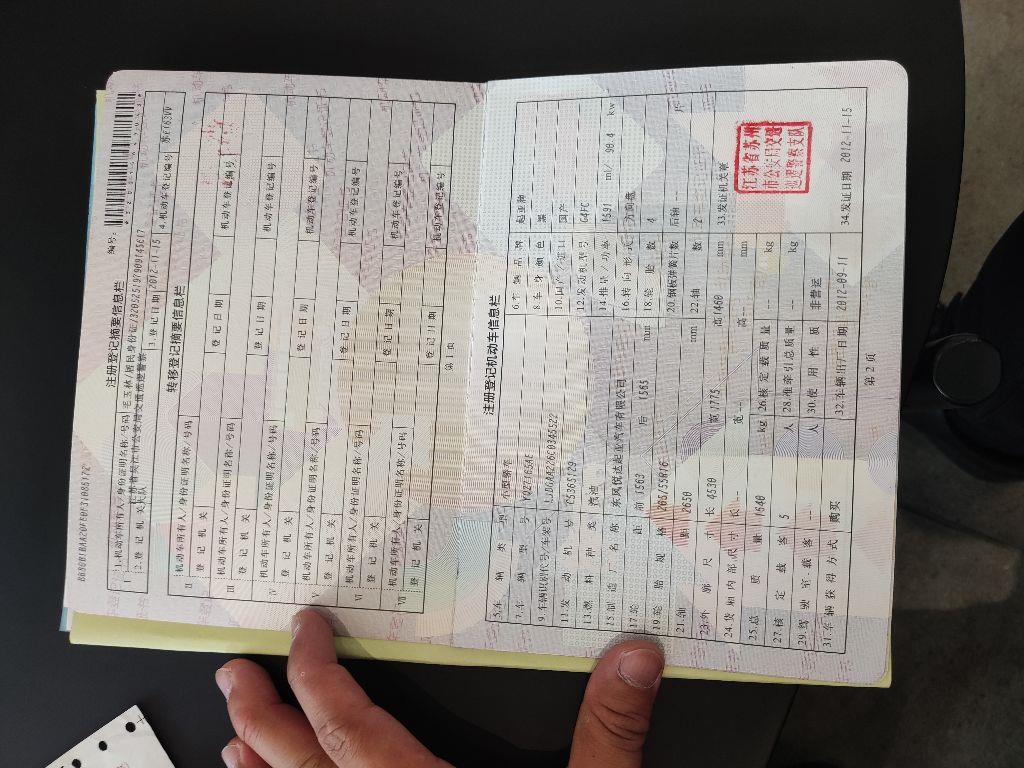 注册登记摘要信息栏
编号:
1.机动车所有人/身份证明名称/号码
2.登记机关
3.登记日期 2012-11-15
4.机动车登记编号
转移登记摘要信息栏
II 机动车所有人/身份证明名称/号码
登记机关 登记日期 机动车登记编号
III 机动车所有人/身份证明名称/号码
登记机关 登记日期 机动车登记编号
IV 机动车所有人/身份证明名称/号码
登记机关 登记日期 机动车登记编号
V 机动车所有人/身份证明名称/号码
登记机关 登记日期 机动车登记编号
VI 机动车所有人/身份证明名称/号码
登记机关 登记日期 机动车登记编号
VII 机动车所有人/身份证明名称/号码
登记机关 登记日期 机动车登记编号
第 1 页
注册登记机动车信息栏
5.车辆类型 小型轿车 6.车辆品牌 起亚牌
7.车辆型号 YQZ7165AE 8.车身颜色 黑
9.车辆识别代号/车架号 10.国产/进口 国产
11.发动机号 12.发动机型号 G4FC
13.燃料种类 汽油 14.排量/功率 1591 ml/ 90.4 kw
15.制造厂名称 东风悦达起亚汽车有限公司 16.转向形式 方向盘
17.轮距 前 1563 后 1565 mm 18.轮胎数 4
19.轮胎规格 205/55R16 20.钢板弹簧片数 后轴 -- 片
21.轴距 2650 mm 22.轴数 2
23.外廓尺寸 长 4530 宽 1775 高 1460 mm
24.货厢内部尺寸 长 -- 宽 -- 高 -- mm
33.发证机关章
江苏省苏州
市公安局交通
巡逻警察支队
25.总质量 1640 kg 26.核定载质量 -- kg
27.核定载客 5 人 28.准牵引总质量 -- kg
29.驾驶室载客 -- 人 30.使用性质 非营运
31.车辆获得方式 购买 32.车辆出厂日期 2012-09-11 34.发证日期 2012-11-15
第 2 页